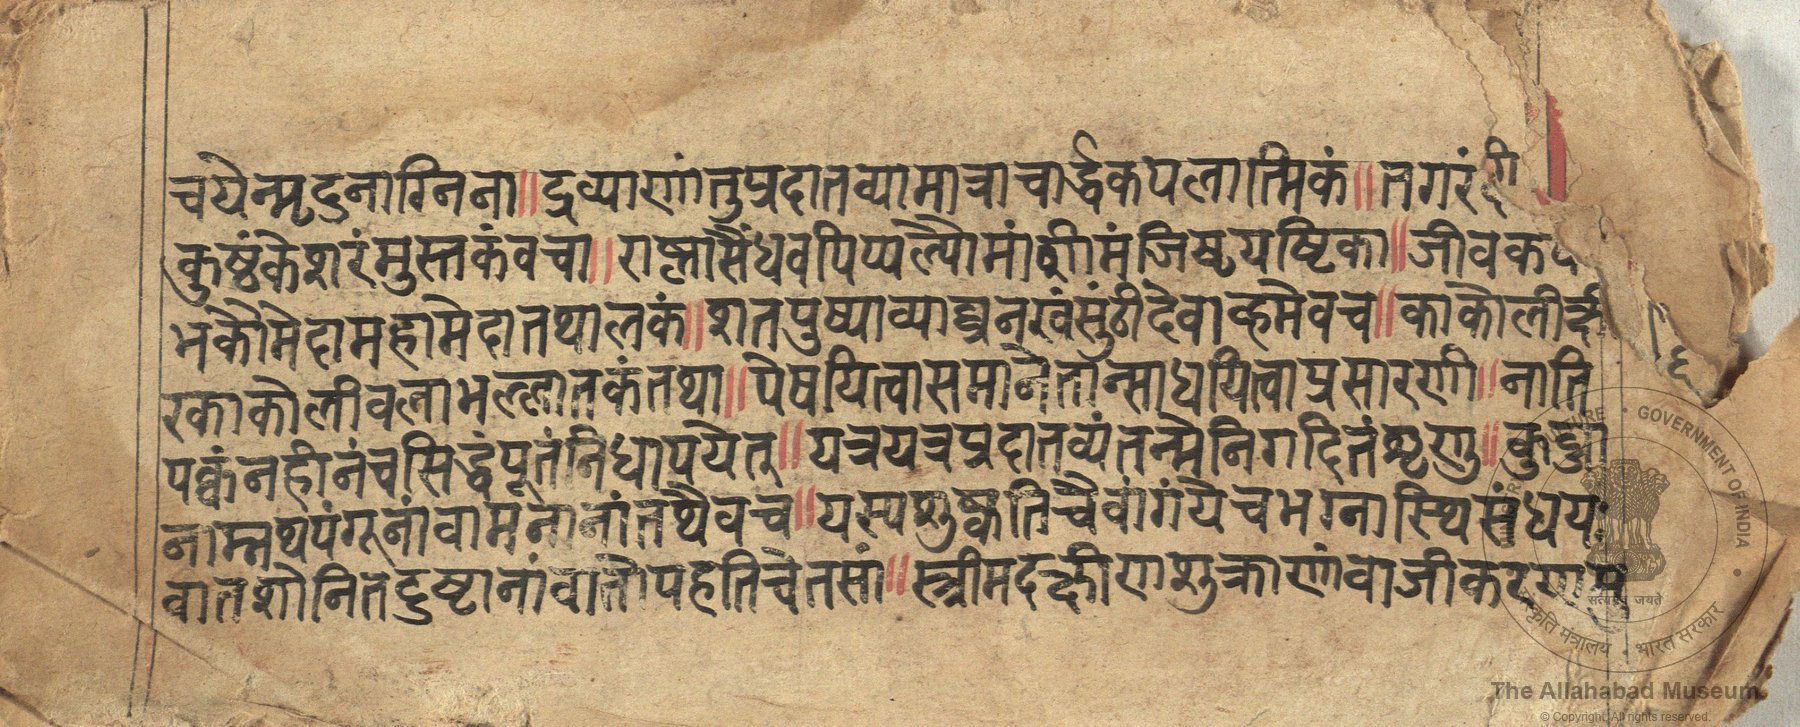 चयेन्मृदुनाग्निना॥द्रव्याणांतुप्रदातव्यामात्राचार्द्धकपलात्मिकं॥तगरं
कुष्ठंकेशरंमुस्तकंवचा॥राष्णासैंधवपिप्पल्यौमांशीमंजिष्टयष्टिका॥जीवक
भकौमेदामहामेदातथालकं॥शतपुष्पाव्याघ्रनखंसुंठीदेवाव्हमेवच॥काकोलीक्षी
रकाकोलीवलाभल्लातकंतथा॥पेषयित्वासमानैतान्साधयित्वाप्रसारणी॥नाति
पक्वंनहीनंचसिद्धंपूतंनिधापयेत्॥यत्रयत्रप्रदातव्यंतन्मेनिगदितंशृणु॥कुब्जा
नाम्नथपंगूनांवामनानांतथैवच॥यस्यशुष्कतिचैवांगंयेचभग्नास्थिसंधयः
वातशोनितदुष्टानांवातोपहतिचेतसां॥स्त्रीमदक्षीणशुक्राणांवाजीकरण
GOVERNMENT OF INDIA
सत्यमेव जयते
संस्कृति मंत्रालय • भारत सरकार
The Allahabad Museum
© Copyright. All rights reserved.